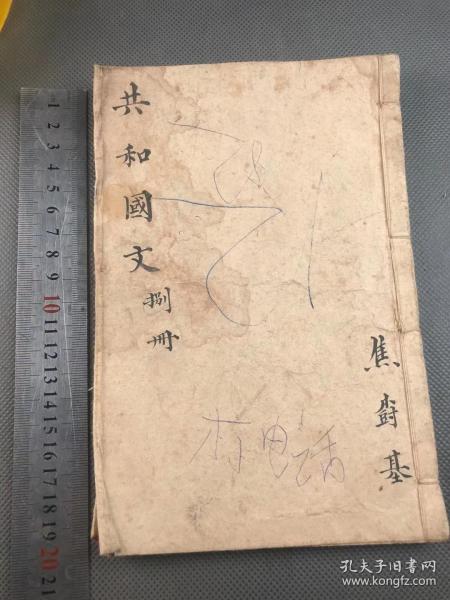 共和國文
捌册
焦樹基
有电话
1 2 3 4 5 6 7 8 9 10 11 12 13 14 15 16 17 18 19 20 21
孔夫子旧书网
www.kongfz.com